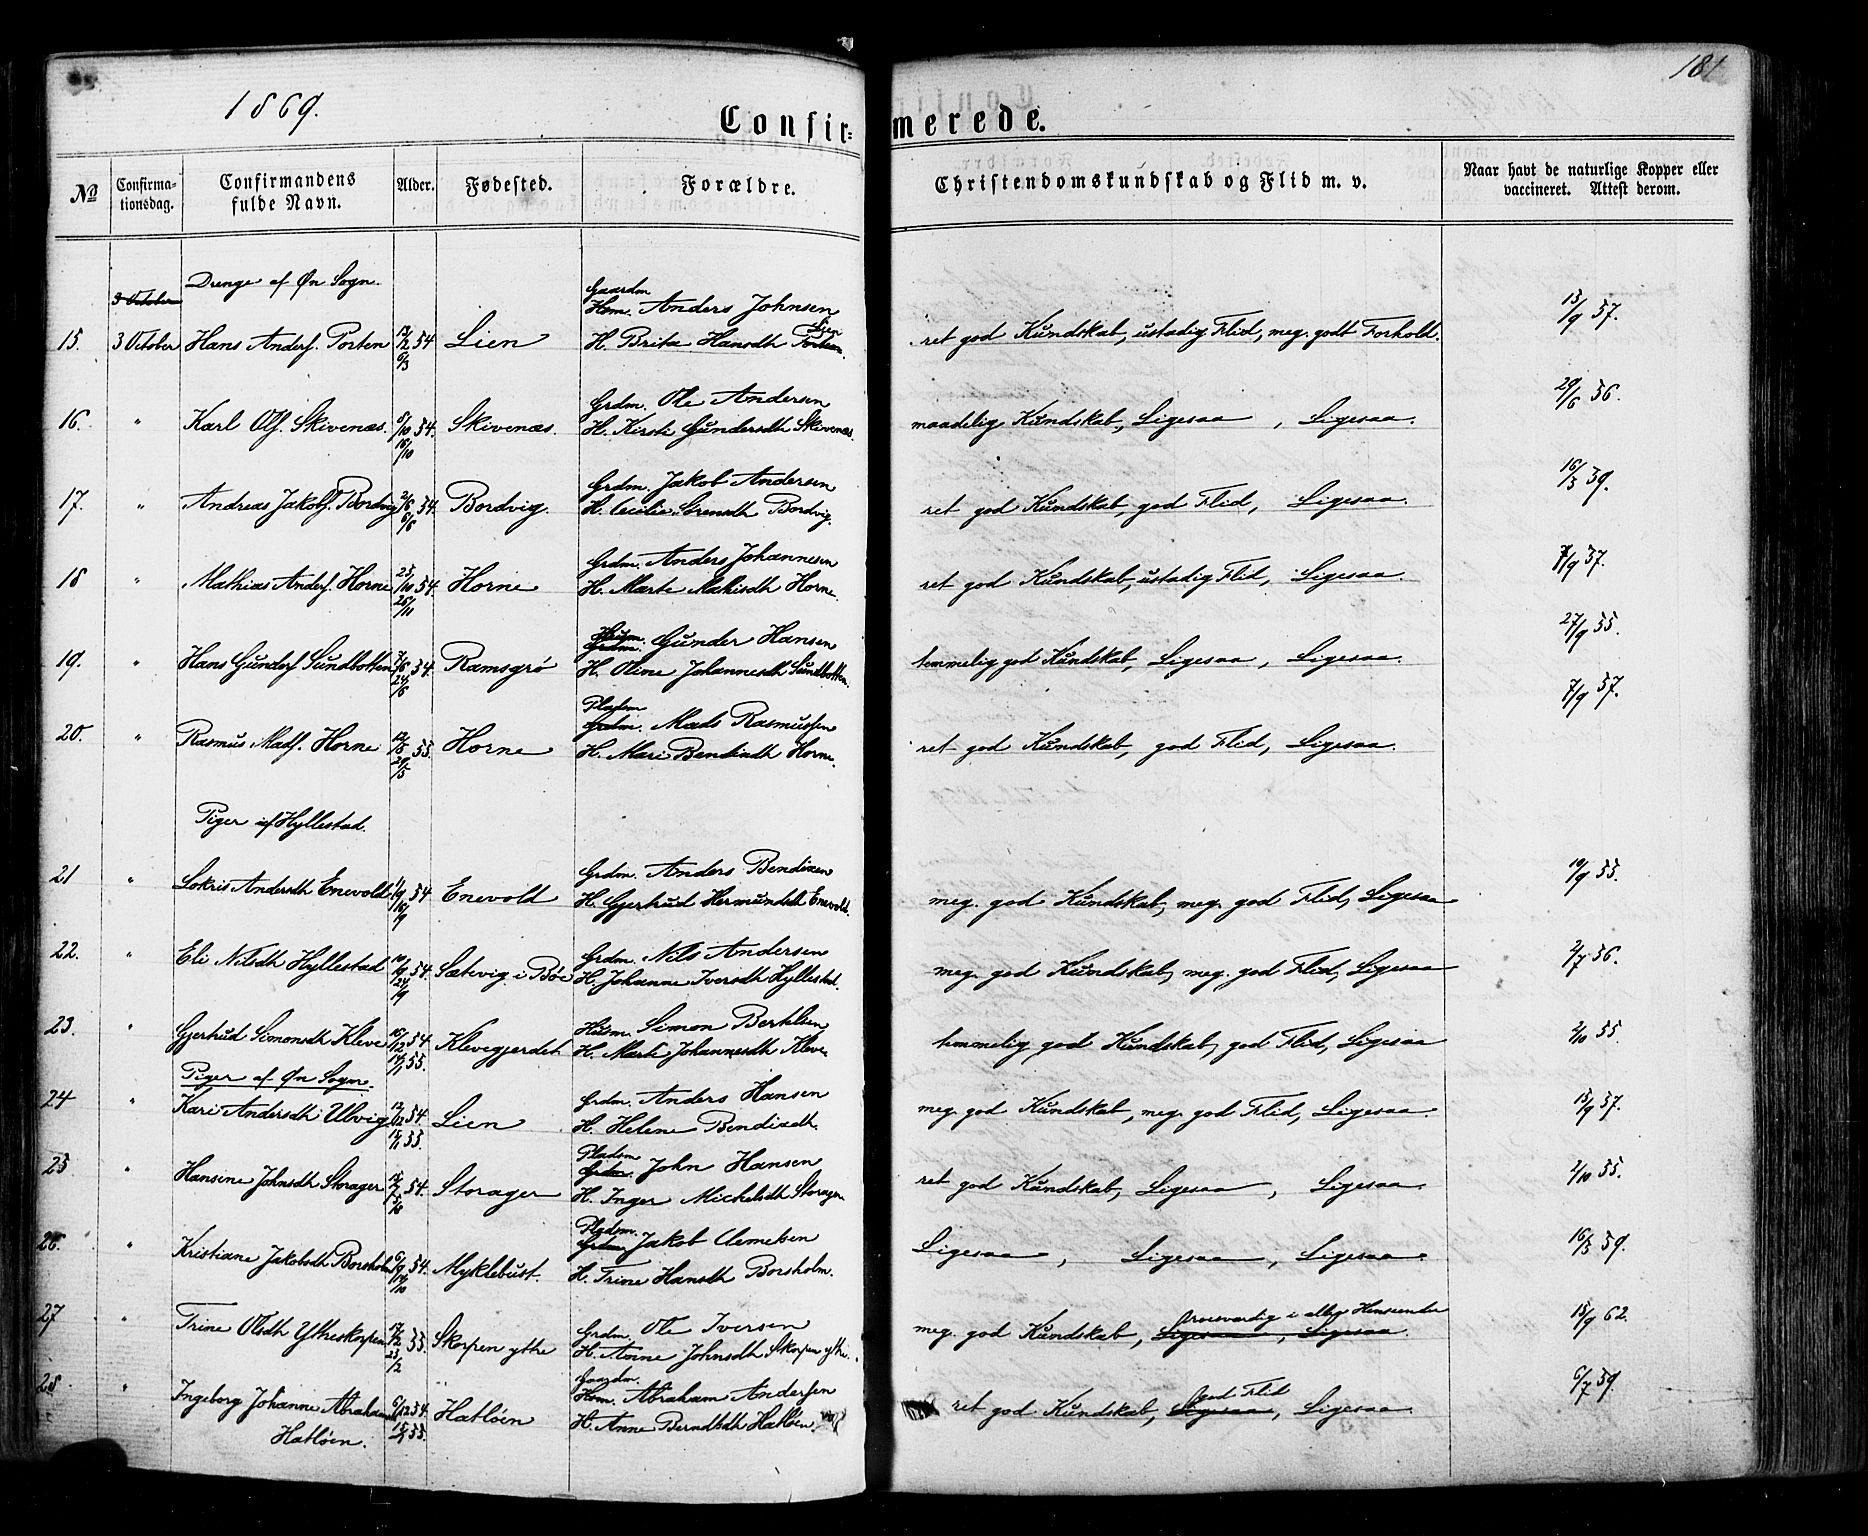 181
1869.
Confir=
merede.
No
Confirma-
tionsdag.
Confirmandens
fulde Navn.
Alder.
Fødested.
Forældre.
Christendomskundskab og Flid m. v.
Naar havt de naturlige Kopper eller
vaccineret. Attest derom.
3 October
Drenge af Øn Sogn.
Gaardm
Hsm. Anders Johnsen
15. 3 October Hans Anders. Porten 12/2 54 6/3 Lien H. Brite Hansdh Porten. Lien ret god Kundskab, ustadig Flid, meg. godt Forhold. 15/9 57.
Grdm. Ole Andersen
16. " Karl Ols. Skivenæs. 8/10 54. Skivenæs. H. Kirsti Gundersdh Skivenæs. maadelig Kundskab, Ligesaa, Ligesaa. 29/6 56.
Grdm. Jakob Andersen
17. " Andreas Jakobs. Bordvig 2/6 54. 6/6 Bordvig. H. Cecilie Sørensdh Bordvig. ret god Kundskab, god Flid, Ligesaa. 16/3 59.
Grdm. Anders Johannesen
18 " Mathias Anders. Horne 23/10 54. 26/11 Horne H. Marte Mathisdh Horne. ret god Kundskab, ustadig Flid, Ligesaa. 7/9 57.
Husm. Grdm. Gunder Hansen
19. " Hans Gunders. Sundbotten 7/6 54. 24/6 Ramsgrø H. Oline Johannesdh Sundbotten. temmelig god Kundskab, Ligesaa, Ligesaa. 27/9 55.
Pladsm
Grdm. Mads Rasmussen
20. " Rasmus Mads. Horne 55. Horne H. Mari Bendixdh Horne. ret god Kundskab, god Flid, Ligesaa. 7/9 57.
Piger af Hyllestad.
Grdm. Anders Bendixen
21 " Lokris Andersdh Enevold 54 Enevold H. Gjertrud Hermundsdh Enevold. meg. god Kundskab, meg. god Flid, Ligesaa 19/9 55.
Grdm. Nils Andersen
22. " Eli Nilsdh Hyllestad 10/9 54. 24/9 Sætevig i Bøe H. Johanne Iversdh Hyllestad. meg. god Kundskab, meg. god Flid, Ligesaa 2/7 56.
Husm. Simon Berthlien
23. " Gjertrud Simonsdh Kleve 16/12 54 55. Klevegjerdet H. Marti Johannesdh Kleve. temmelig god Kundskab, god Flid, Ligesaa 2/10 55.
Piger af Øn Sogn.
Grdm. Anders Hansen
24 " Kari Andersdh Ulvig 54. 55 Lien H. Helene Bendixdh. meg. god Kundskab, meg. god Flid, Ligesaa. 15/9 57.
Pladsm
Grdm. John Hansen
25 " Hansine Johnsdh Storager 54. Storager H. Inger Michelsdh Storager ret god Kundskab, Ligesaa, Ligesaa. 2/10 55.
Pladsm.
Grdm. Jakob Clemetsen
26. " Kristiane Jakobsdh Borsholm 54. Myklebust. H. Trine Hansdh Borsholm. Ligesaa, Ligesaa, Ligesaa. 16/3 59.
Grdm. Ole Iversen
27 " Trine Olsdh Ytreskorpen 55. Skorpen ytre H. Anne Johnsdh Skorpen ytre. meg. god Kundskab, Ligesaa, Ligesaa. Prosværdig i alle Henseender 15/9 62.
Gaardm.
Hsm. Abraham Andersen
28. " Ingeborg Johanne Abrahamsdh 6/12 54. 55. Hatløen H. Anne Berndtsdh Hatløen. ret god Kundskab, Ligesaa, god Flid Ligesaa. 6/7 59.
Hatløen.